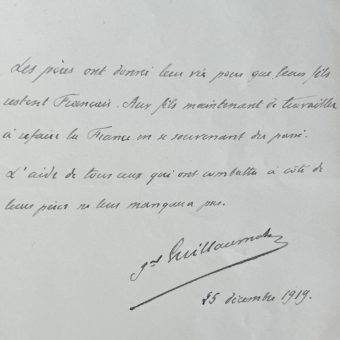 Les pères ont donné leur vie pour que leurs fils
restent Français. Aux fils maintenant de travailler
à refaire la France en se souvenant du passé.
L'aide de tous ceux qui ont combattu à côté de
leurs pères ne leur manquera pas.
gal Guillaumat
25 décembre 1919.